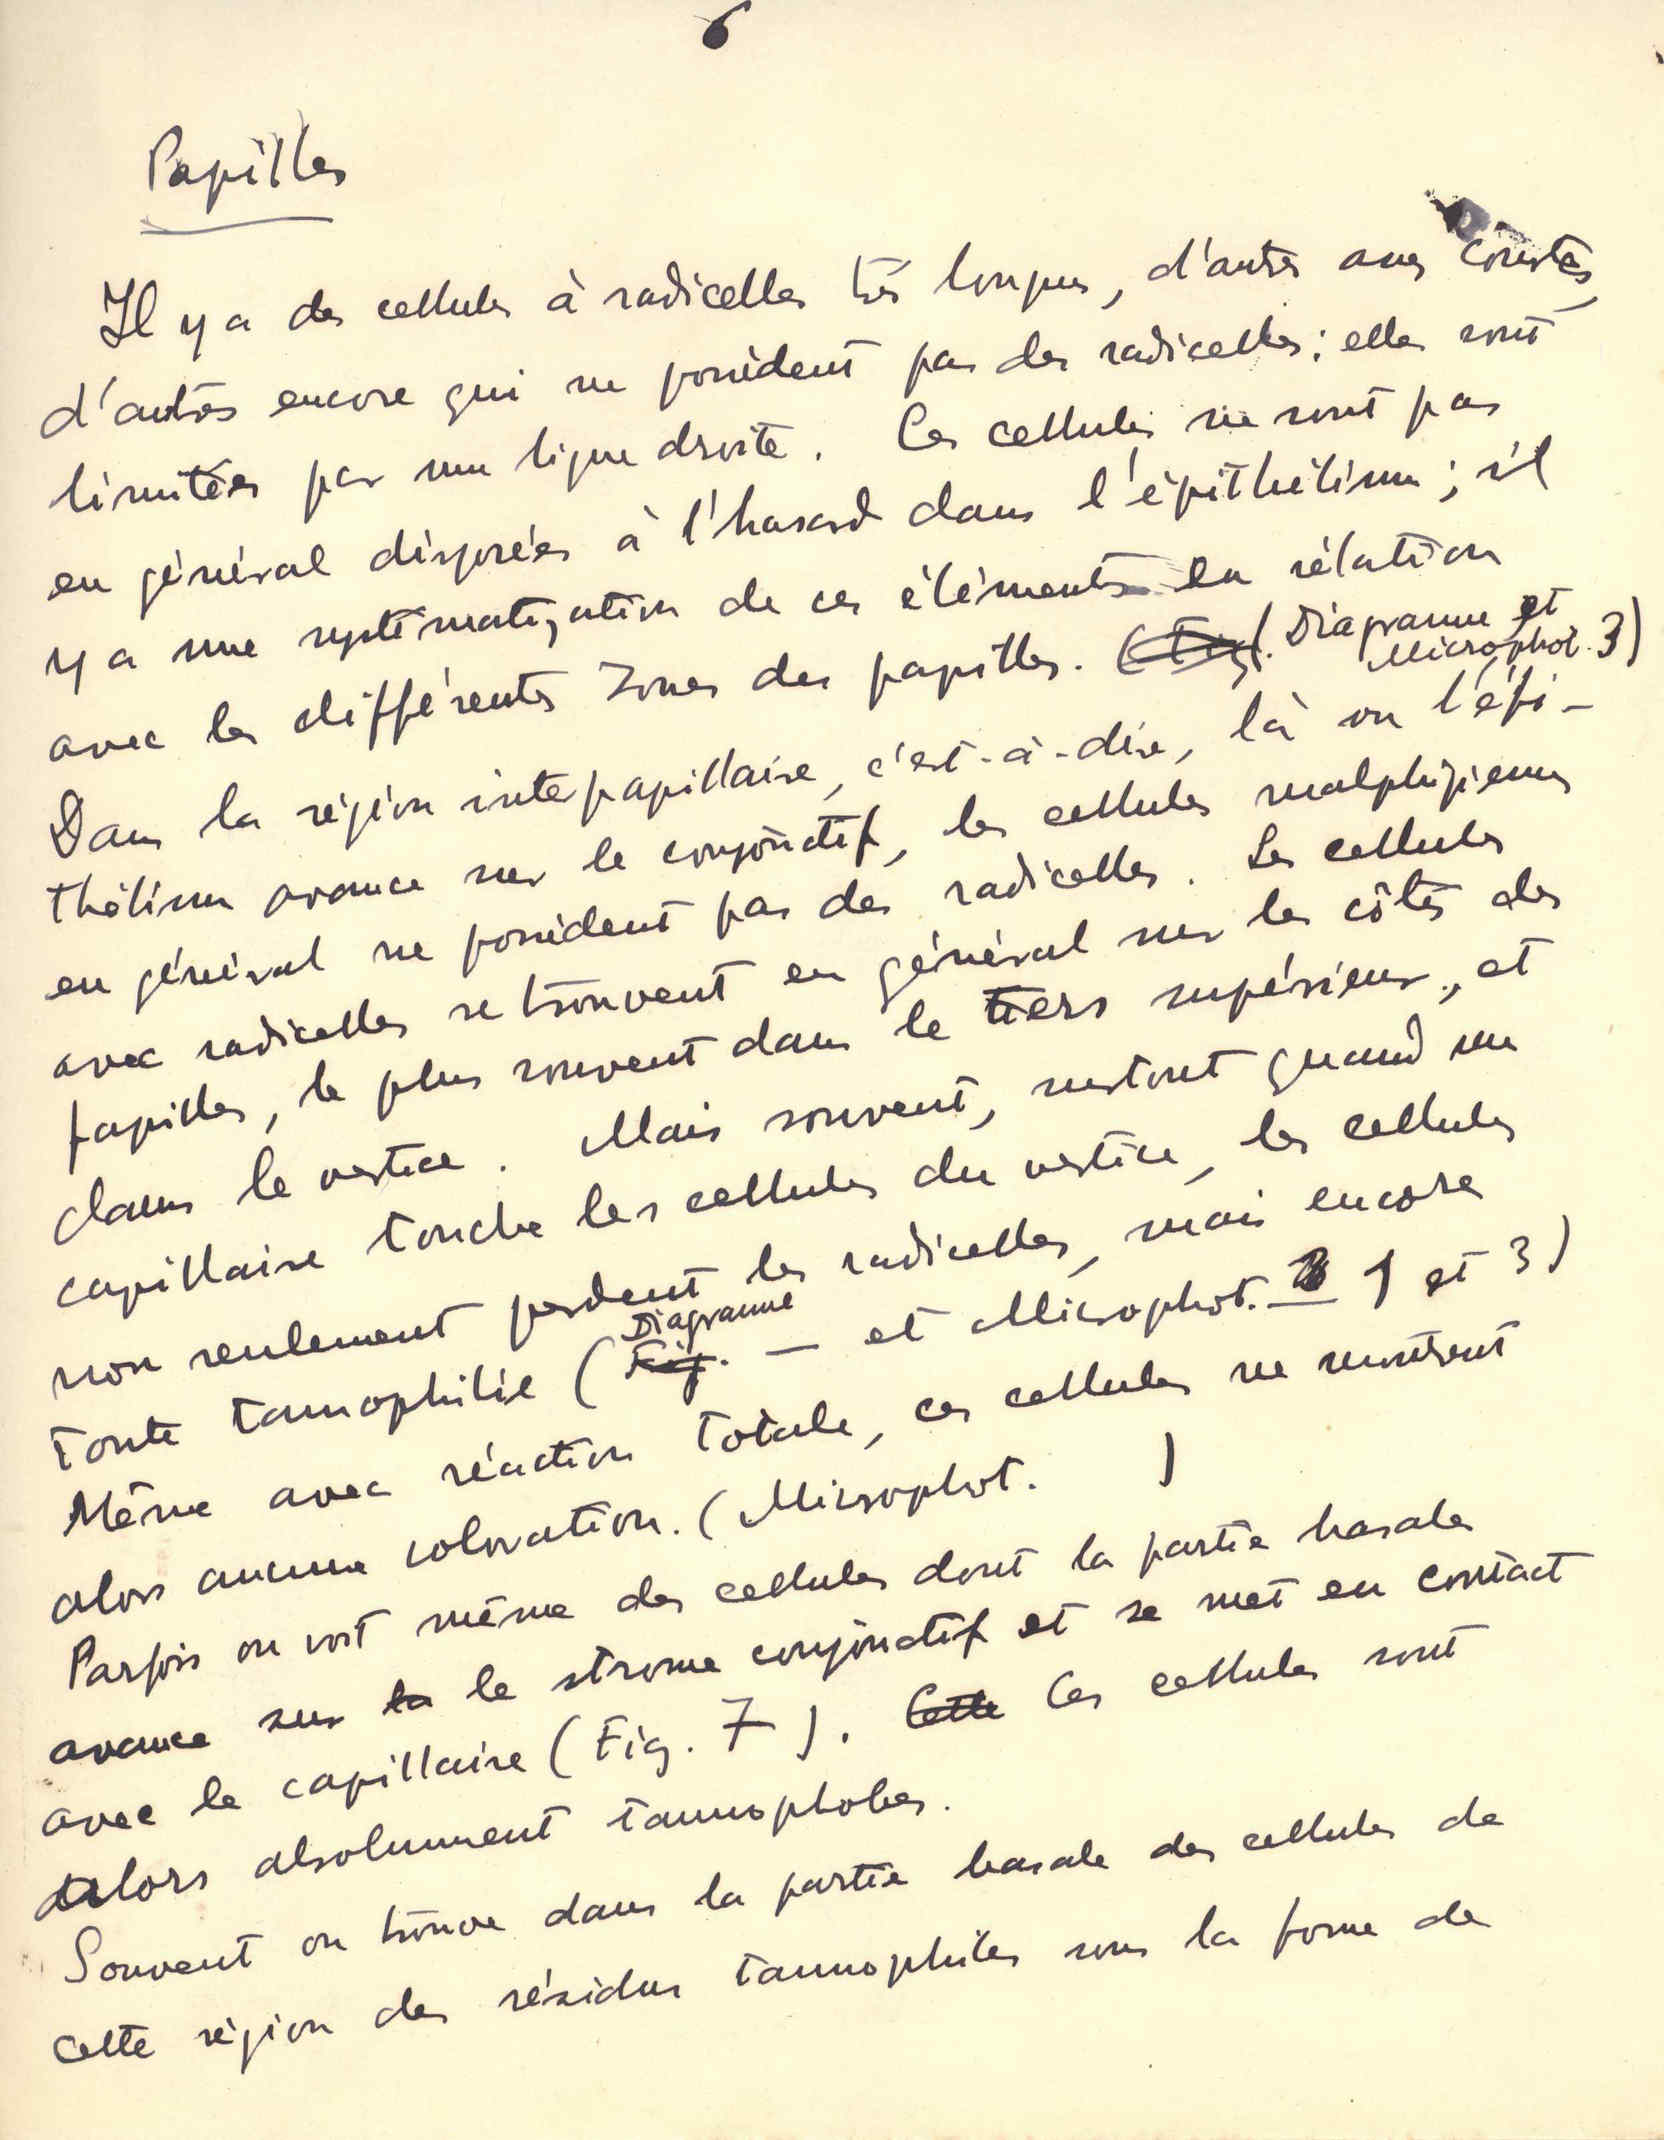 6
Papilles
Il y a des cellules à radicelles très longues, d'autres assez courtes,
d'autres encore qui ne possèdent pas des radicelles; elles sont
limitées par une ligne droite. Ces cellules ne sont pas
en général disposées à l'hasard dans l'épithélium; s'il
y a une systématization de ces éléments en rélation
avec les différents zones des papilles. (Fig. Diagramme et
Microphot. 3)
Dans la région interpapillaire, c'est-à-dire, là ou l'épi-
thélium avance sur le conjonctif, les cellules malphigiennes
en général ne possèdent pas des radicelles. Les cellules
avec radicelles se trouvent en général sur les côtés des
papilles, le plus souvent dans le tiers supérieur, et
dans le vertice. Mais souvent, surtout quand un
capillaire touche les cellules du vertice, les cellules
non seulement perdent les radicelles, mais encore
Diagramme
toute tannophilie (Fig. — et Microphot. 1 et 3)
Même avec réaction totale, ces cellules ne montrent
alors aucune coloration. (Microphot. )
Parfois on voit même des cellules dont la partie basale
avance sur la le stroma conjonctif et se met en contact
avec le capillaire (Fig. 7). Cette Ces cellules sont
alors absolument tannophobes.
Souvent on trouve dans la partie basale des cellules de
cette région des résidus tannophiles sous la forme de